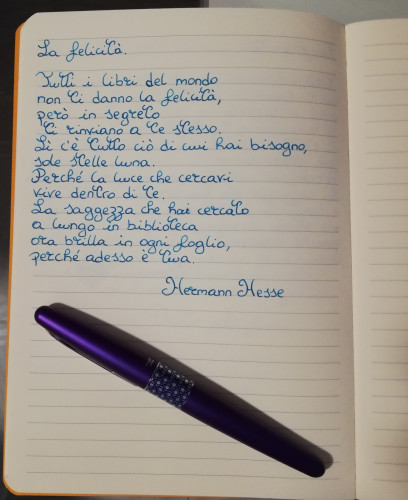 La felicità.
Tutti i libri del mondo
non ti danno la felicità,
però in segreto
ti rinviano a te stesso.
Lì c'è tutto ciò di cui hai bisogno,
sole stelle luna.
Perché la luce che cercavi
vive dentro di te.
La saggezza che hai cercato
a lungo in biblioteca
ora brilla in ogni foglio,
perché adesso è tua.
Hermann Hesse